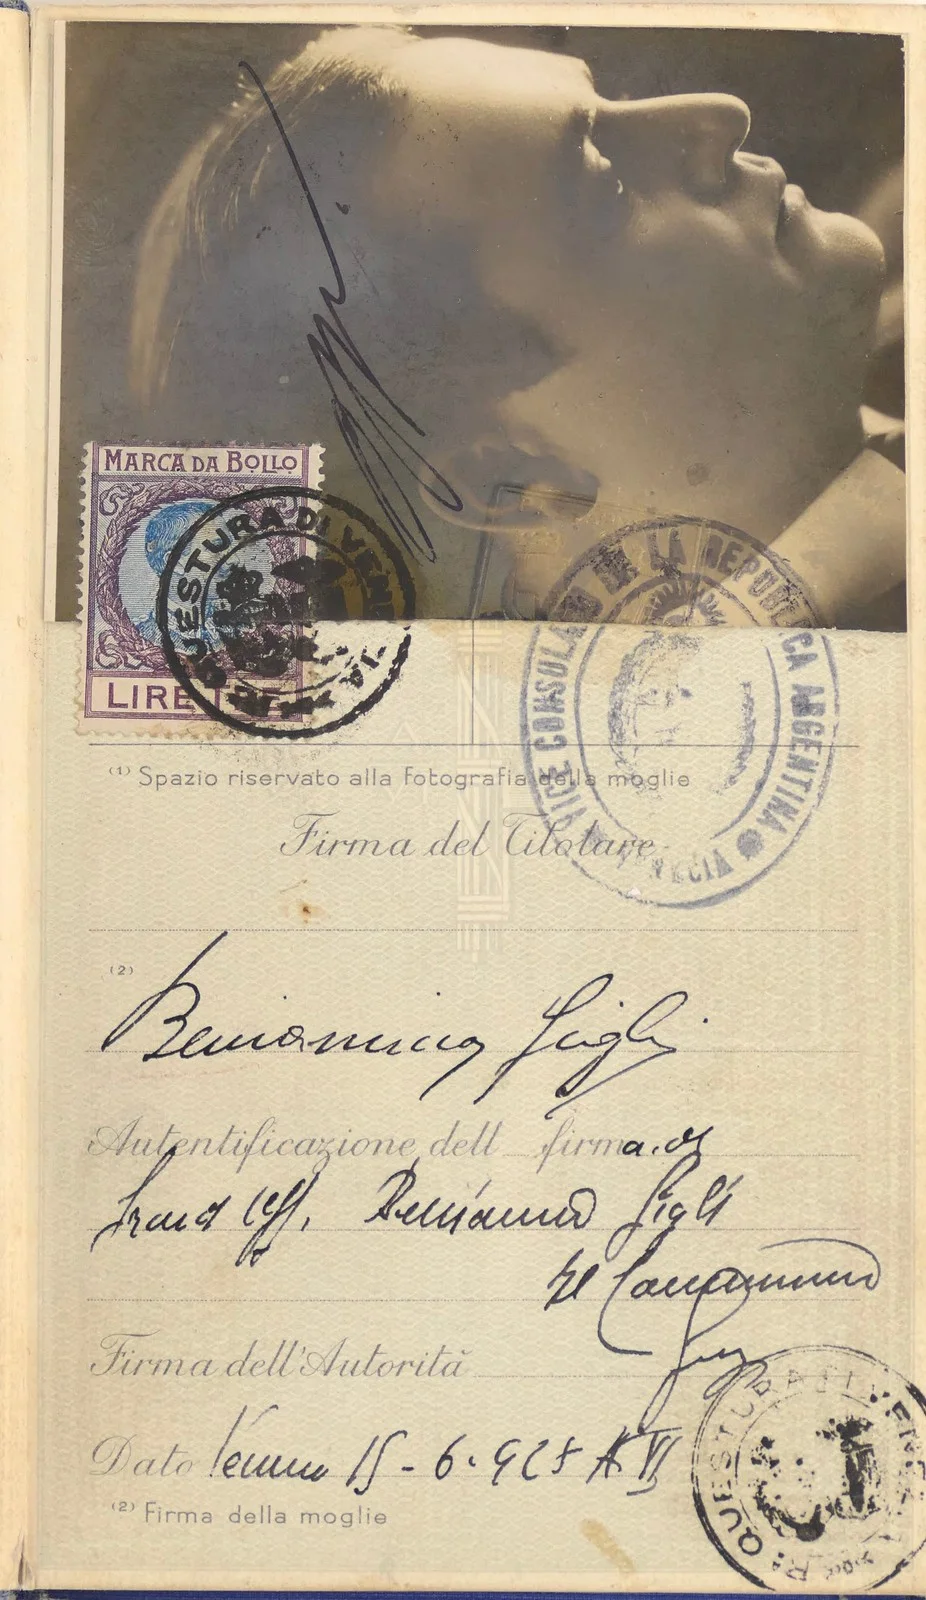 MARCA DA BOLLO
QUESTURA DI VENEZIA
LIRE
VICE CONSULADO DE LA REPUBLICA ARGENTINA
VENECIA
(1) Spazio riservato alla fotografia della moglie
Firma del Titolare
(2)
Beniamino Gigli
Autentificazione dell firma di
Beniamino Gigli
Il
Firma dell'Autorità
Dato 15-6-928 A VI
(2) Firma della moglie
QUESTURA DI VENEZIA